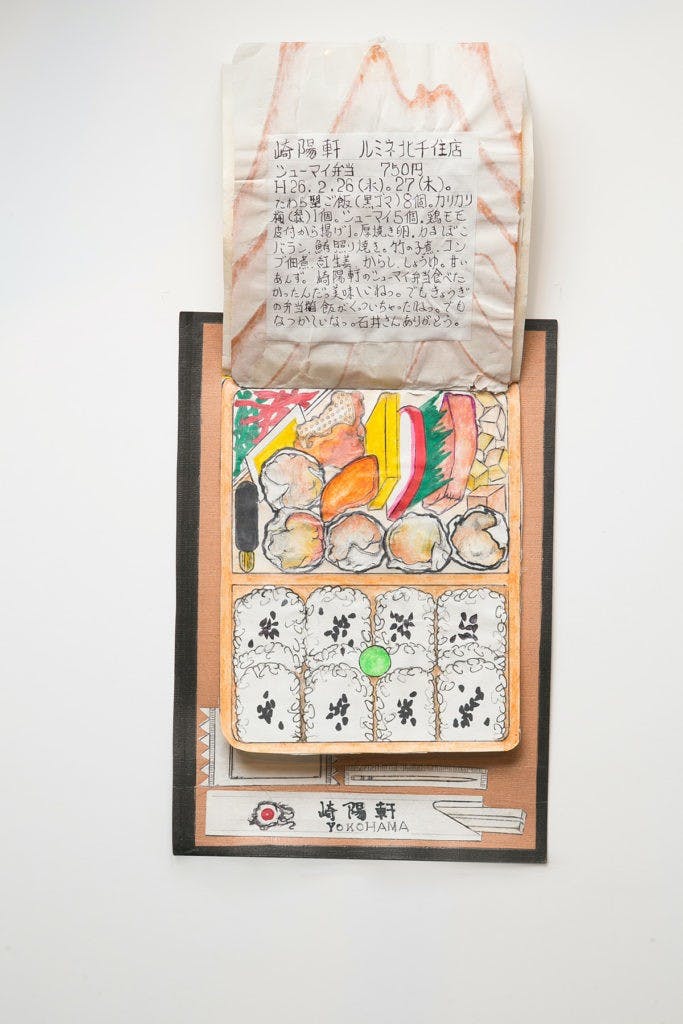 崎陽軒 ルミネ北千住店
シューマイ弁当 750円
H26.2.26(水)。27(木)。
たわら型ご飯(黒ゴマ)8個。カリカリ
梅(緑)1個。シューマイ5個。鶏モモ
皮付から揚げ。厚焼き卵。かまぼこ
バラン。鮪照り焼き。竹の子煮。コン
ブ佃煮。紅生姜。からし。しょうゆ。甘い
あんず。崎陽軒のシューマイ弁当食べた
かったんだっ美味いねっ。でもきょうぎ
の弁当箱飯がくっついちゃったねっ。でも
なつかしいなっ。石井さんありがとう。
崎陽軒
YOKOHAMA